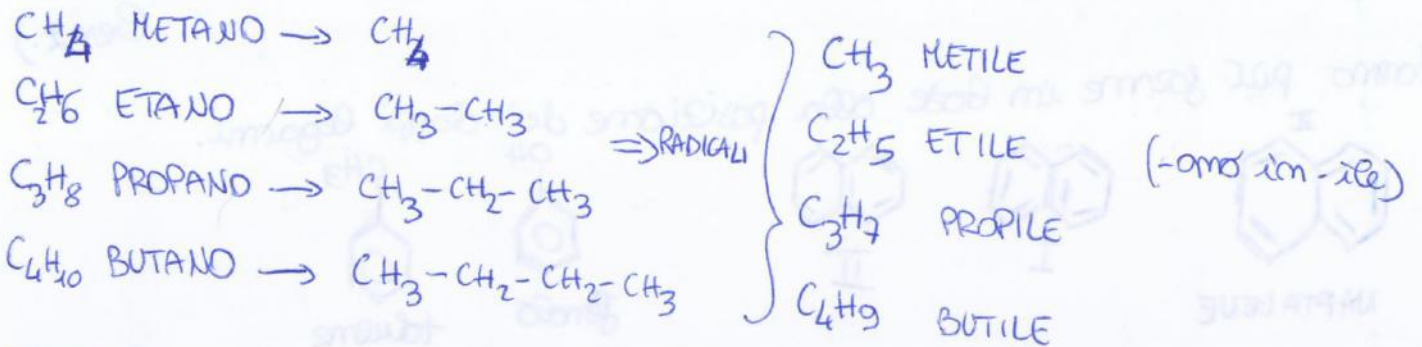 CH4 METANO → CH4
C2H6 ETANO → CH3-CH3
C3H8 PROPANO → CH3-CH2-CH3
C4H10 BUTANO → CH3-CH2-CH2-CH3
⇒RADICALI
CH3 METILE
C2H5 ETILE
C3H7 PROPILE
C4H9 BUTILE
(-ano in -ile)